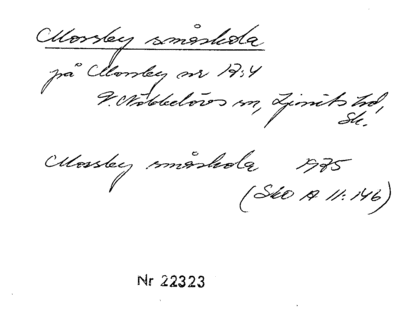 Mossby småskola
på Mossby nr 17:4
V. Nöbbelövs sn, Ljunits hd,
Sk.
Mossby småskola 1975
(SkO A 11:146)
Nr 22323